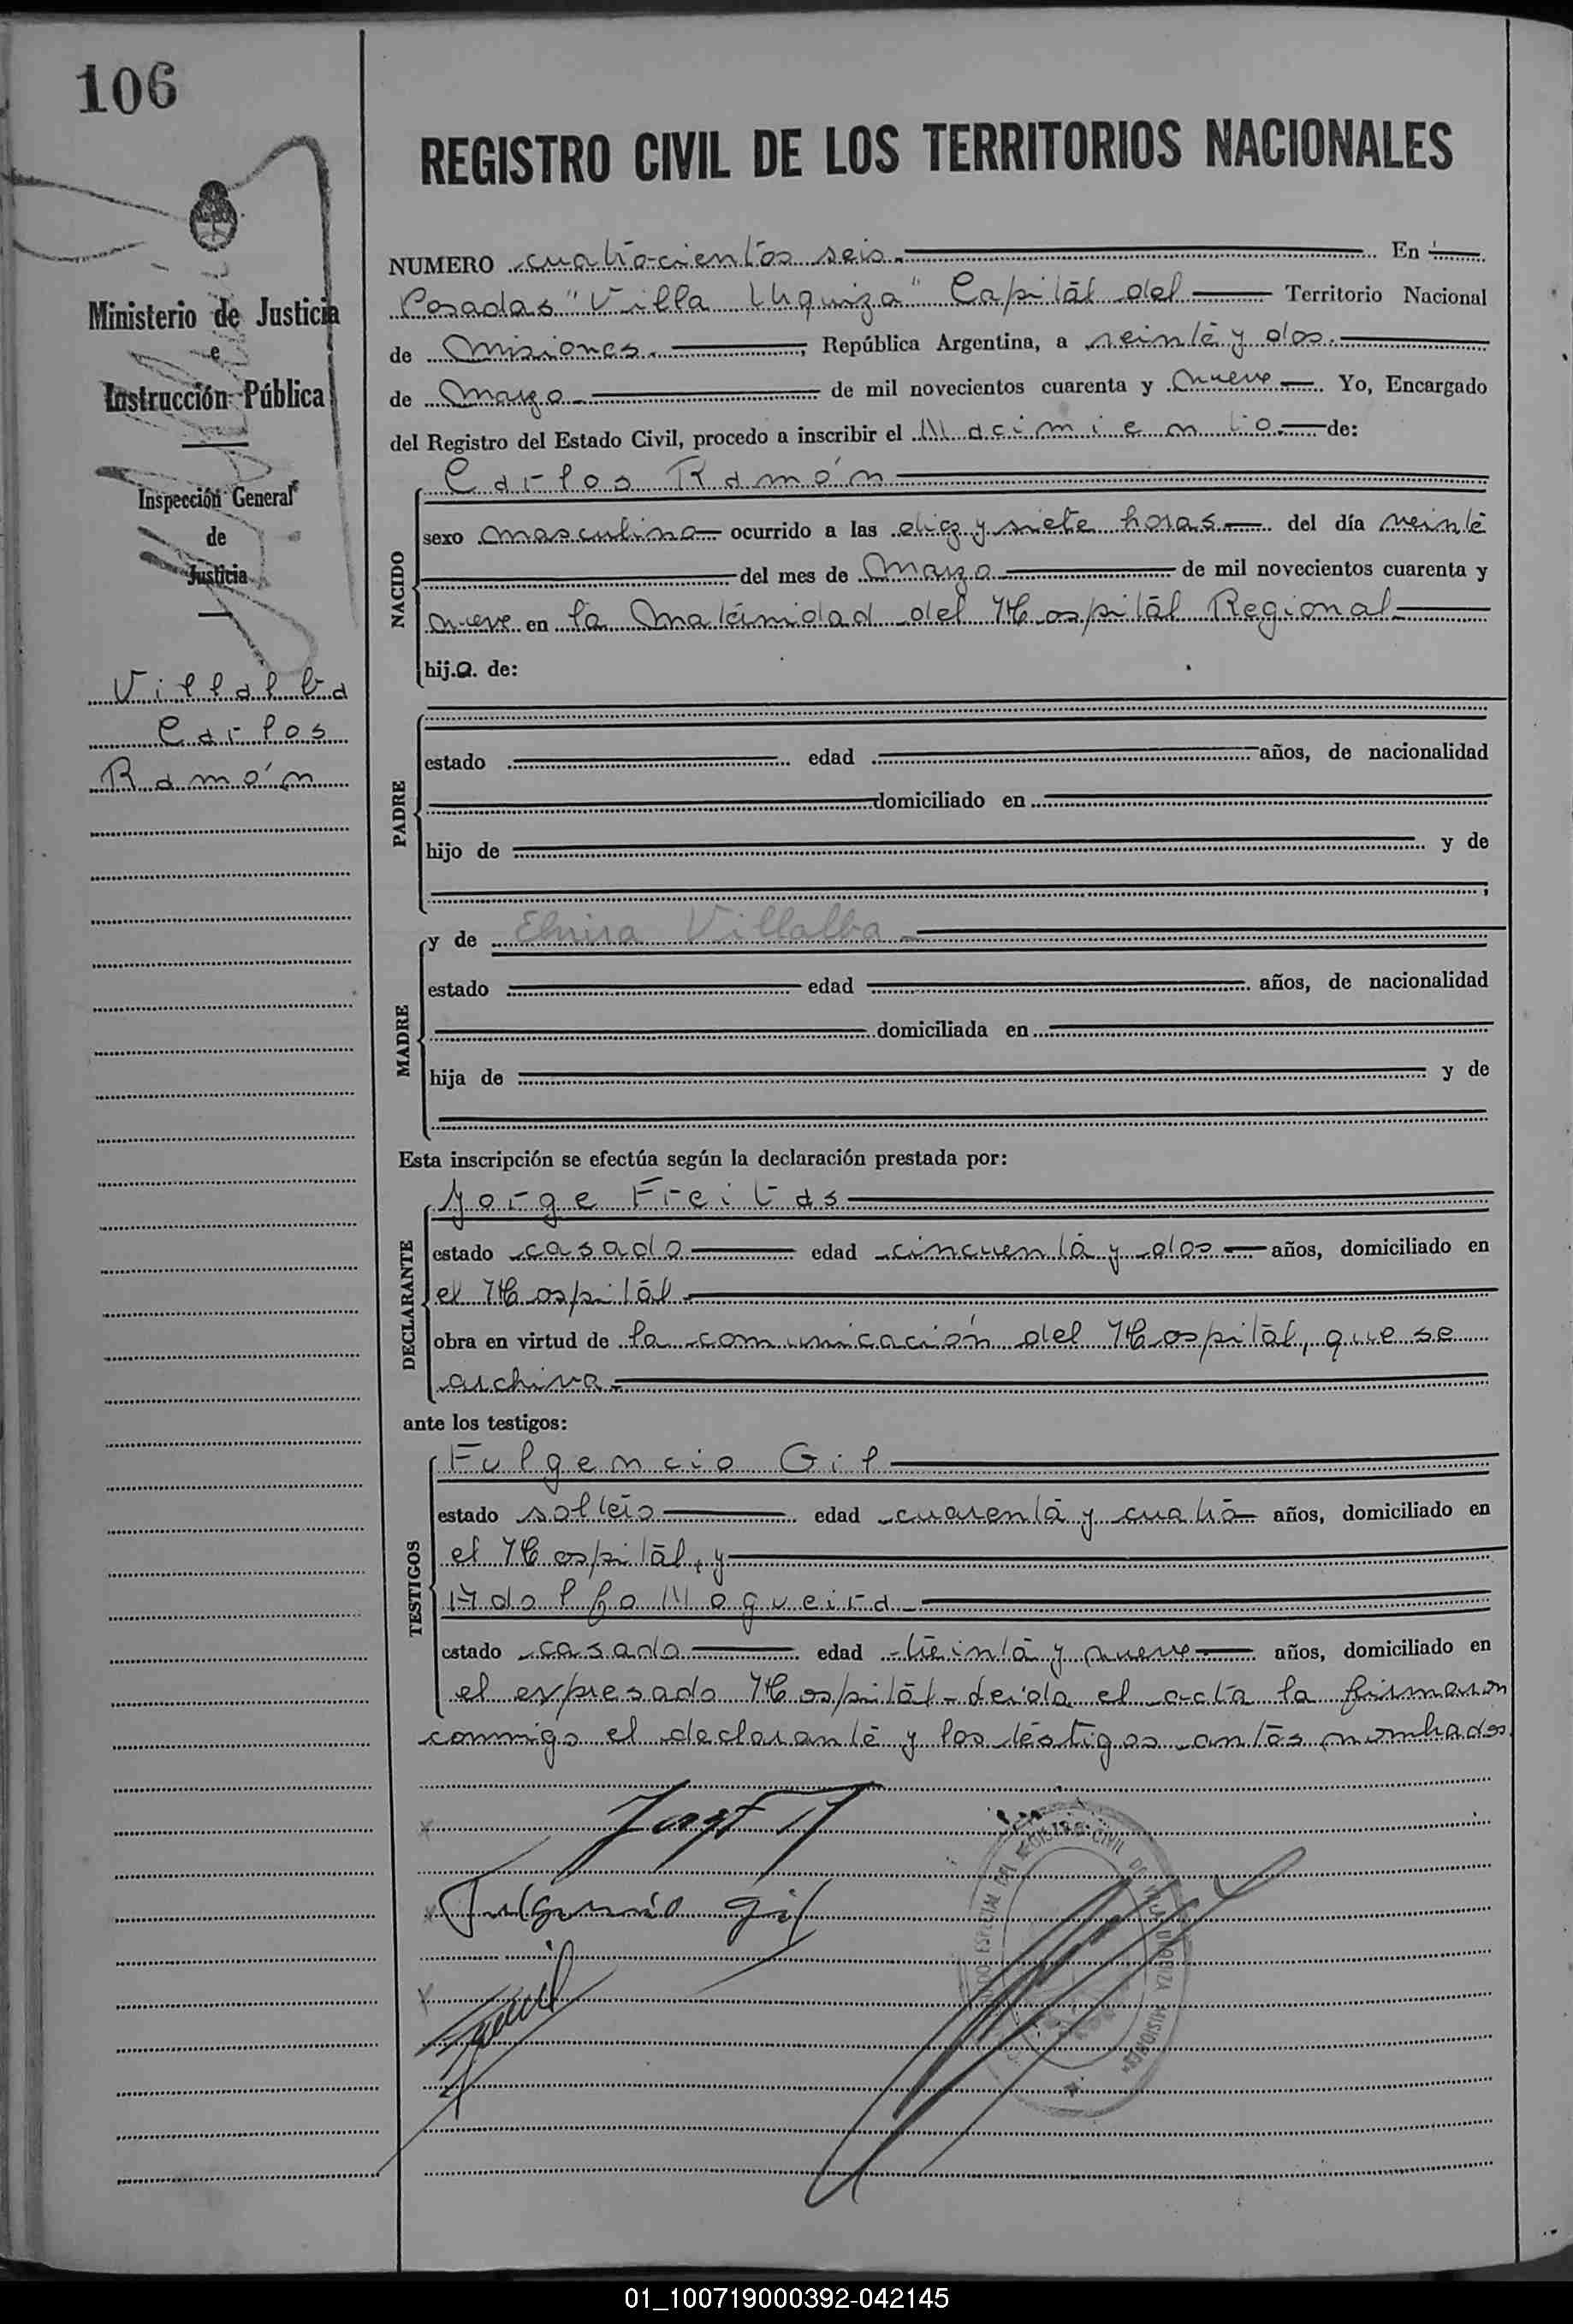 106
REGISTRO CIVIL DE LOS TERRITORIOS NACIONALES
Ministerio de Justicia
e
Instrucción Pública
Inspección General
de
Justicia
Villalba
Carlos
Ramón
NUMERO cuatrocientos seis. En
Posadas "Villa Urquiza" Capital del Territorio Nacional
de Misiones. , República Argentina, a veinte y dos.
de Marzo de mil novecientos cuarenta y nueve Yo, Encargado
del Registro del Estado Civil, procedo a inscribir el Nacimiento. de:
NACIDO
Carlos Ramón
sexo masculino ocurrido a las diez y siete horas del día veinte
del mes de Marzo de mil novecientos cuarenta y
nueve en la Maternidad del Hospital Regional
hijo. de:
PADRE
estado edad años, de nacionalidad
domiciliado en
hijo de y de
;
MADRE
y de Elvira Villalba
estado edad años, de nacionalidad
domiciliada en
hija de y de
Esta inscripción se efectúa según la declaración prestada por:
DECLARANTE
Jorge Freitas
estado casado edad cincuenta y dos años, domiciliado en
el Hospital
obra en virtud de la comunicación del Hospital, que se
archiva
ante los testigos:
TESTIGOS
Fulgencio Gil
estado soltero edad cuarenta y cuatro años, domiciliado en
el Hospital, y
Adolfo Nogueira
estado casado edad treinta y nueve años, domiciliado en
el expresado Hospital - leída el acta la firmaron
conmigo el declarante y los testigos antes nombrados.
Fulgencio Gil
REGISTRO CIVIL DE VILLA URQUIZA MISIONES
01_100719000392-042145